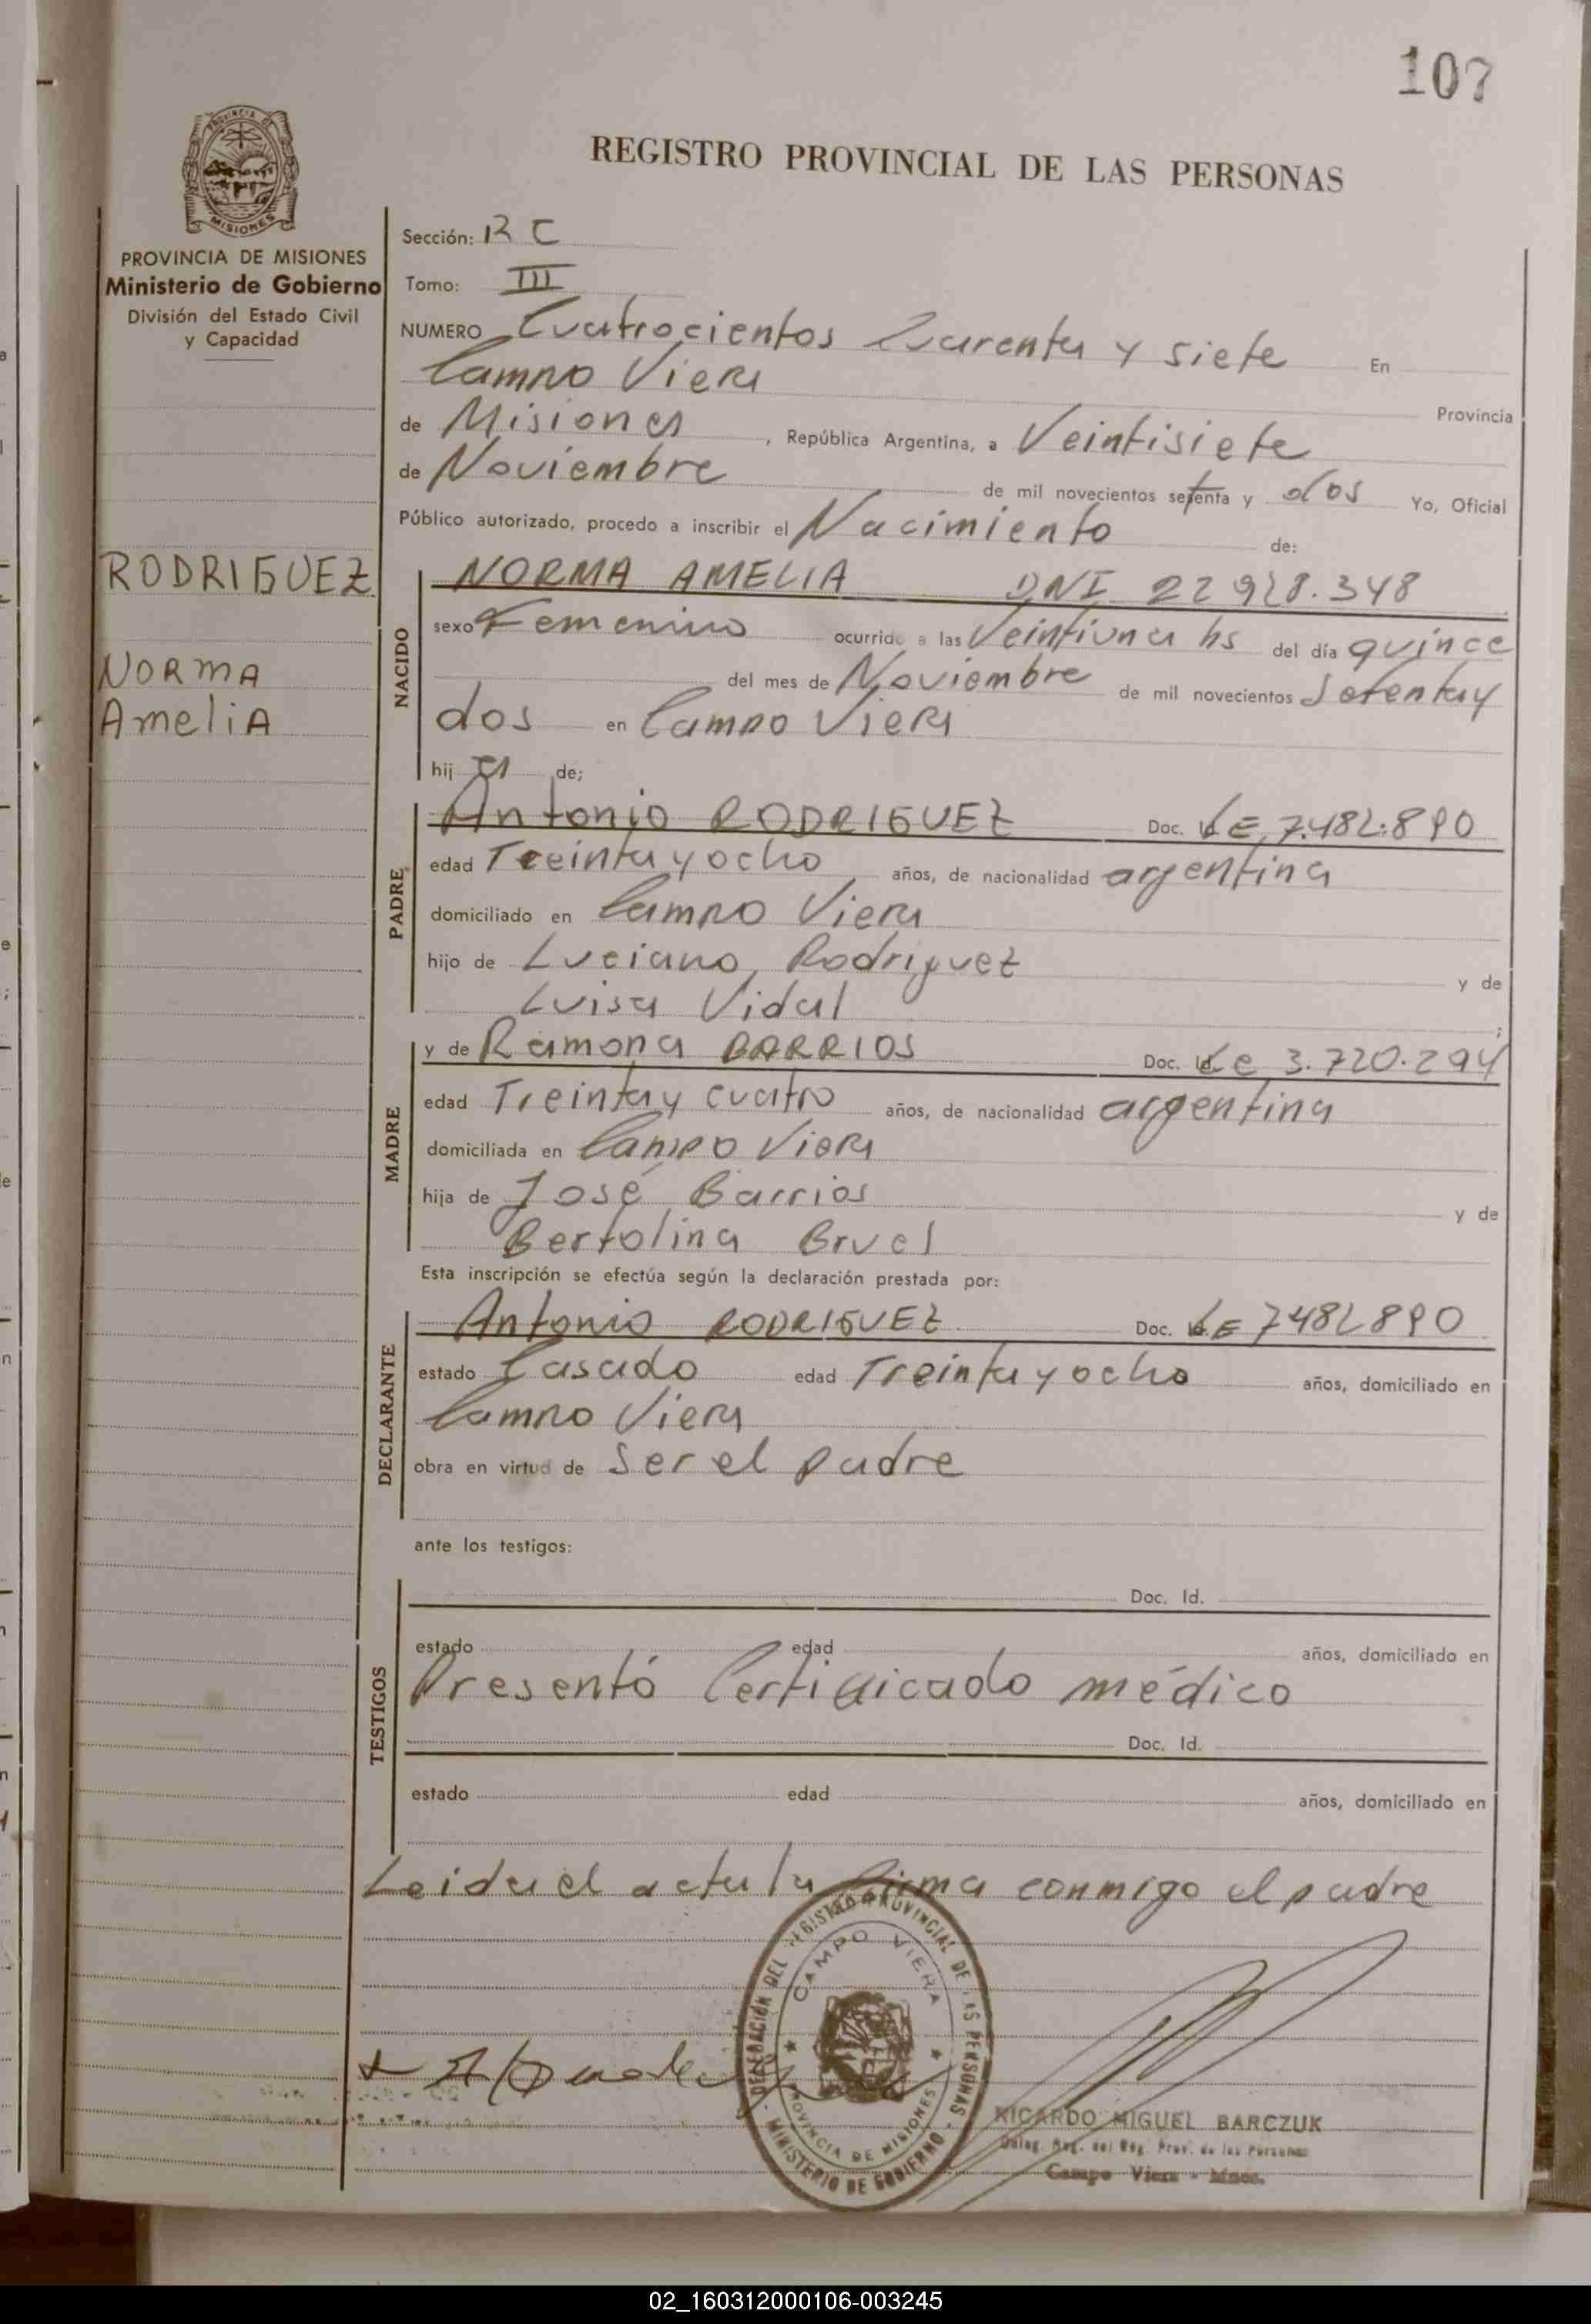 107
REGISTRO PROVINCIAL DE LAS PERSONAS
MISIONES
PROVINCIA DE MISIONES
Ministerio de Gobierno
División del Estado Civil
y Capacidad
RODRIGUEZ
NORMA
AmeliA
Sección: RC
Tomo: III
NUMERO Cuatrocientos Cuarenta y siete En
Campo Viera Provincia
de Misiones, República Argentina, a Veintisiete
de Noviembre de mil novecientos setenta y dos Yo, Oficial
Público autorizado, procedo a inscribir el Nacimiento de:
NACIDO
NORMA AMELIA DNI 22 928.348
sexo Femenino ocurrido a las Veintiuna hs del día quince
del mes de Noviembre de mil novecientos Setentay
dos en Campo Viera
hij a de;
PADRE
Antonio RODRIGUEZ Doc. LE 7.482.890
edad Treinta y ocho años, de nacionalidad argentina
domiciliado en Campo Viera
hijo de Luciano Rodriguez y de
Luisa Vidal ;
MADRE
y de Ramona BARRIOS Doc. Id. Lc 3.720.294
edad Treintay cuatro años, de nacionalidad argentina
domiciliada en Campo Viera
hija de José Barrios y de
Bertolina Bruel
Esta inscripción se efectúa según la declaración prestada por:
DECLARANTE
Antonio RODRIGUEZ Doc. LE 7482890
estado Casado edad Treinta y ocho años, domiciliado en
Campo Viera
obra en virtud de ser el padre
ante los testigos:
TESTIGOS
Doc. Id.
estado edad años, domiciliado en
Presentó Certificado médico
Doc. Id.
estado edad años, domiciliado en
Leida el acta la firma conmigo el padre
DELEGACIÓN DEL REGISTRO PROVINCIAL DE LAS PERSONAS
CAMPO VIERA
PROVINCIA DE MISIONES
MINISTERIO DE GOBIERNO
RICARDO MIGUEL BARCZUK
Deleg. Reg. del Reg. Prov. de las Personas
Campo Viera - Mnes.
02_160312000106-003245